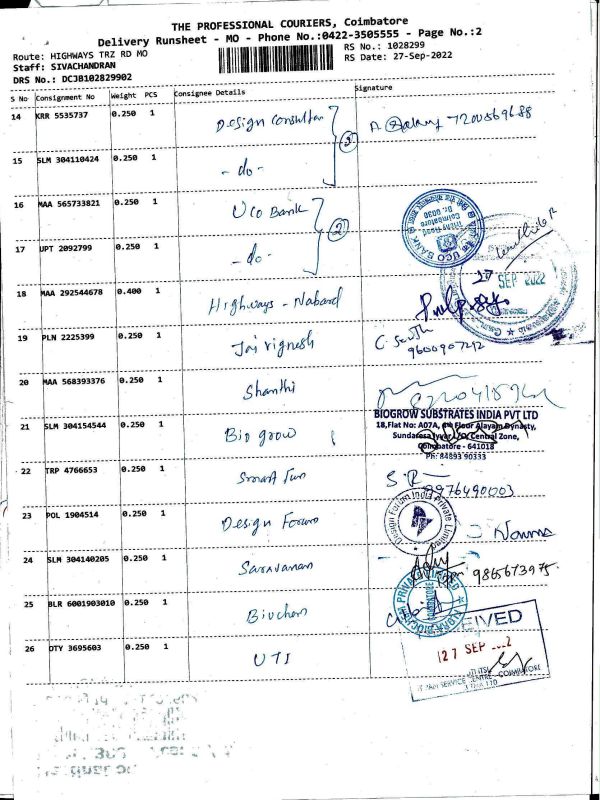 THE PROFESSIONAL COURIERS, Coimbatore
Delivery Runsheet - MO - Phone No.:0422-3505555 - Page No.:2
Route: HIGHWAYS TRZ RD MO
RS No.: 1028299
Staff: SIVACHANDRAN
RS Date: 27-Sep-2022
DRS No.: DCJB102829902
S No Consignment No Weight PCS Consignee Details Signature
14 KRR 5535737 0.250 1 Design Consultan 7200869688
15 SLM 304110424 0.250 1 - do -
16 MAA 565733821 0.250 1 Uco Bank
17 UPT 2092799 0.250 1 - do -
UCO BANK
Trichy Road
Coimbatore
Br. 0030
27 SEP 2022
18 MAA 292544678 0.400 1 Highways - Nabard
19 PLN 2225399 0.250 1 Jai vignesh
9600907212
20 MAA 568393376 0.250 1 Shanthi
21 SLM 304154544 0.250 1 Bio grow
BIOGROW SUBSTRATES INDIA PVT LTD
18,Flat No: A07A, 4th Floor Alayam Dynasty,
Sundaresa Iyyer L/O, Central Zone,
Coimbatore - 641018
Ph: 84893 90333
22 TRP 4766653 0.250 1 Smart Fun S.R
8976490003
23 POL 1904514 0.250 1 Design Forum
Design Forum India Private Limited
24 SLM 304140205 0.250 1 Saravanan 9865673975
25 BLR 6001903010 0.250 1 Biochem
26 OTY 3695603 0.250 1 UTI
RECEIVED
27 SEP 2022
COIMBATORE